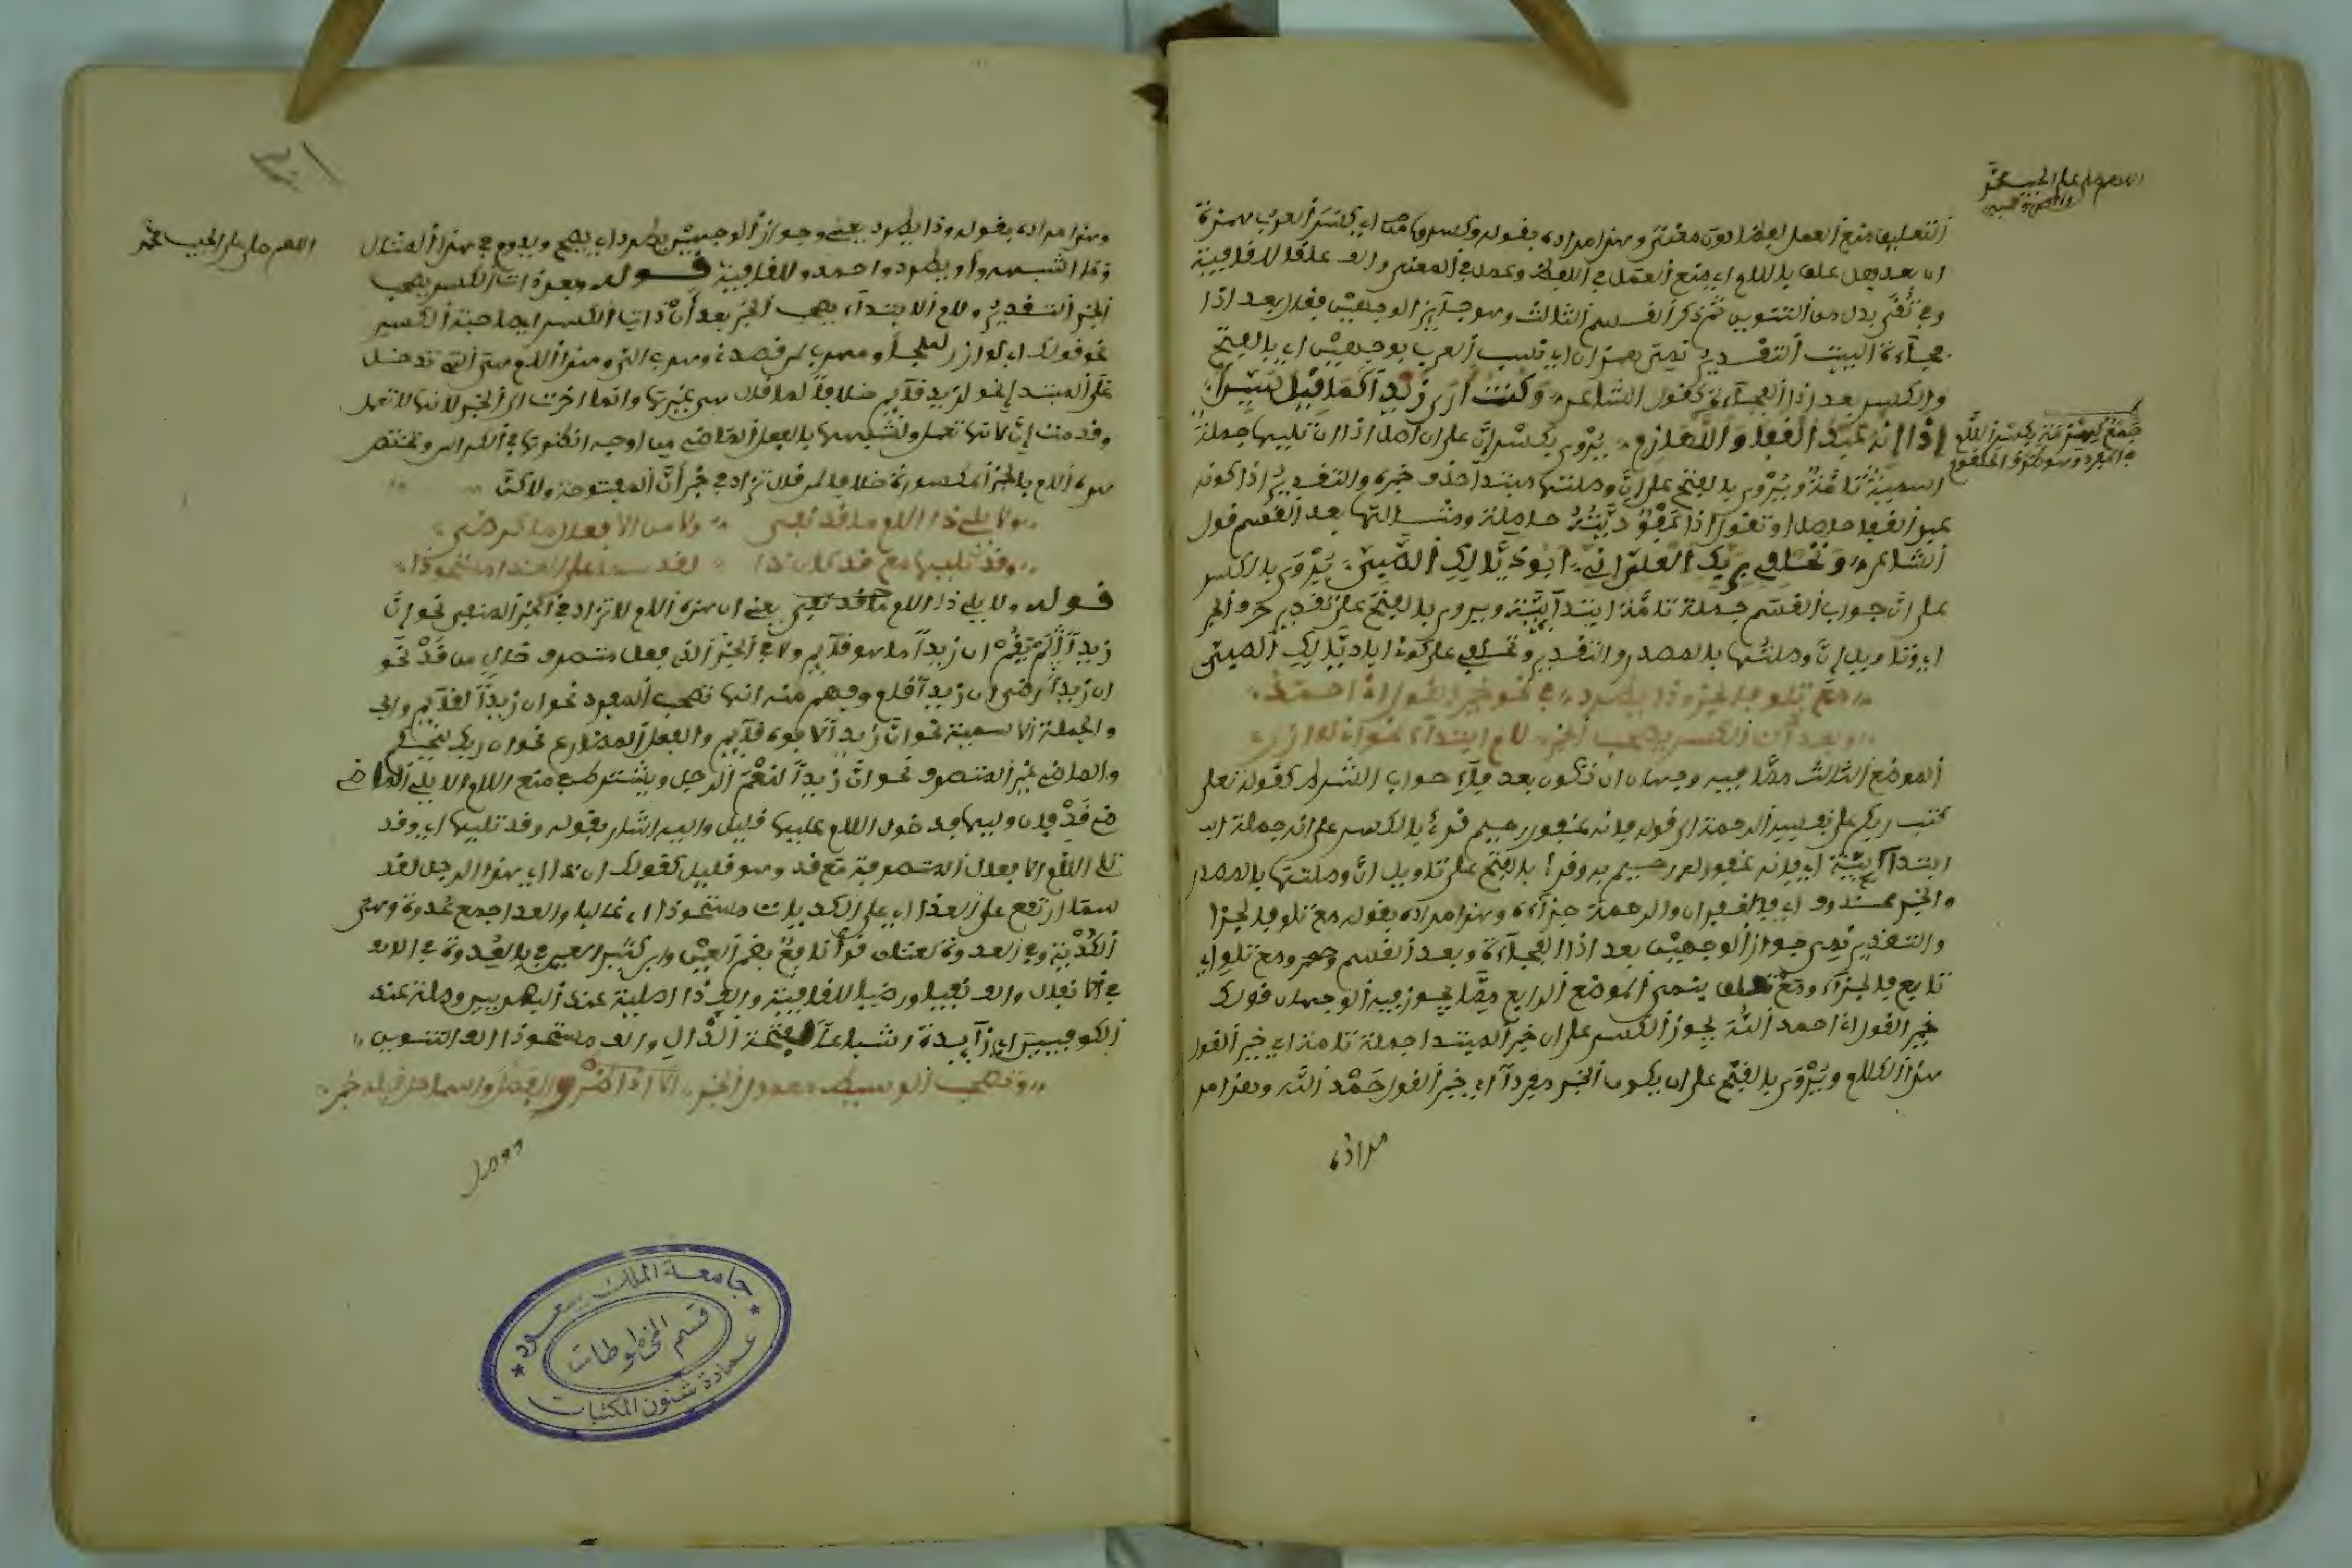 اللهم صل على الحبيب محمد
وآله وصحبه
التعليق منع العمل لفظا دون معنى وهذا مراده بقوله وكسروا من اي بكسر العرب همزة
ان بعد فعل علق باللام اي منع العمل في اللفظ وعمل في المعنى والف علقا للقافية
وفي تقى بدل من التنوين ثم ذكر القسم الثالث وهو جائز الوجهين فقال بعد اذا
فجاءة البيت التقدير نمي همز ان اي نسب العرب بوجهين اي بالفتح
والكسر بعد اذا الفجاءة كقول الشاعر وكنت ارى زيدا كما قيل سيدا
اذا انه عبد القفا واللهازم يروى بكسر ان على ان اصل اذا ان تليها جملة
جمع لهزمة بكسر اللام
اسمية تامة ويروى بالفتح على ان وصلتها مبتدا حذف خبره والتقدير اذا كونه
عبد القفا حاصل او تقول اذا عبوديته حاصلة ومثالها بعد القسم قول
الشاعر وتحلفي بربك العلي اني ابو ذيالك الصبي يروى بالكسر
على ان جواب القسم جملة تامة ابتدائية ويروى بالفتح على تقدير حرف الجر
اي وتاويل ان وصلتها بالمصدر والتقدير وتحلفي على كوني ابا ذيالك الصبي
مع تلو فا الجزا وذا يطرد في نحو خير القول اني احمد
وبعد ذات الكسر تصحب الخبر لام ابتداء نحو اني لوزر
الموضع الثالث مما فيه وجهان ان تكون بعد فاء جواب الشرط كقوله تعلى
كتب ربكم على نفسه الرحمة الى قوله فانه غفور رحيم قرئ بالكسر على انه جملة
ابتدائية اي فانه غفور له رحيم به وقرئ بالفتح على تاويل ان وصلتها بالمصدر
والخبر محذوف اي فالغفران والرحمة جزاءه وهذا مراده بقوله مع تلو فا الجزا
والتقدير نمي جواز الوجهين بعد اذا الفجاءة وبعد القسم ومع تلو اي
تابع فا الجزاء ومع تمامه ينتهي الموضع الرابع مما يجوز فيه الوجهان قولك
خير القول اني احمد الله يجوز الكسر على ان خبر المبتدا جملة تامة اي خير القول
هذا الكلام ويروى بالفتح على ان يكون الخبر مفردا اي خير القول حمد الله وهذا
مراده
١٣٠
اللهم صل على الحبيب محمد
وهذا مراده بقوله وذا يطرد يعني وجواز الوجهين يطرد اي يصح ويدوم في هذا المثال
وما اشبهه واو يطرد واحمد وللقافية قوله وبعد ذات الكسر تصحب
الخبر التقدير ولام الابتداء تصحب الخبر بعد ان ذات الكسر اي صاحبة الكسر
نحو قولك اني لوزر لملجأ ومهرب لمن قصده وهذا اللام هي التي تدخل
على المبتدا نحو لزيد قائم خلافا لما قال هي غيرها وانما اخرت الى الخبر لانها لا تعمل
وقدمت ان لانها تعمل ولشبهها بالفعل الماضي من اوجه انظرها في المرادي وتختص
هذه اللام بالخبر المكسورة خلافا لمن قال تزاد في خبر ان المفتوحة ولكن
ولا يلي ذا اللام ما قد نفي ولا من الافعال ما كرضي
وقد تليها مع قد كان ذا لقد سما على العدا مستحوذا
قوله ولا يلي ذا اللام ما قد نفي يعني ان هذه اللام لا تزاد في الخبر المنفي نحو ان
زيدا لم يقم ان زيدا ما هو قائم ولا في الخبر الذي فعل متصرف خال من قد نحو
ان زيدا رضي ان زيدا قام وفهم منه انها تصحب المفرد نحو ان زيدا لقائم
والجملة الاسمية نحو ان زيدا لابوه قائم والفعل المضارع نحو ان ربك ليحكم
والماضي غير المتصرف نحو ان زيدا لنعم الرجل ويشترط في منع اللام الا يلي الماضي
قد فان وليها فدخول اللام عليها قليل واليه اشار بقوله وقد تليها اي وقد
تلي اللام الافعال المتصرفة مع قد وهو قليل كقولك ان ذا اي هذا الرجل لقد
سما ارتفع على العدا اي على الكديات مستحوذا اي غالبا والعدا جمع عدوة وهي
الكدية وفي العدوة لغتان قرا نافع بضم العين وابن كثير بالعدوة
في الافعال والف نفيا ورضيا للقافية والف ذا اصلية عند البصريين وصلة عند
الكوفيين اي زائدة اشباعا لفتحة الذال والف مستحوذا الف التنوين
وتصحب الواسط معمول الخبر والفصل واسما حل قبله خبر
جامعة الملك سعود
قسم المخطوطات
عمادة شئون المكتبات